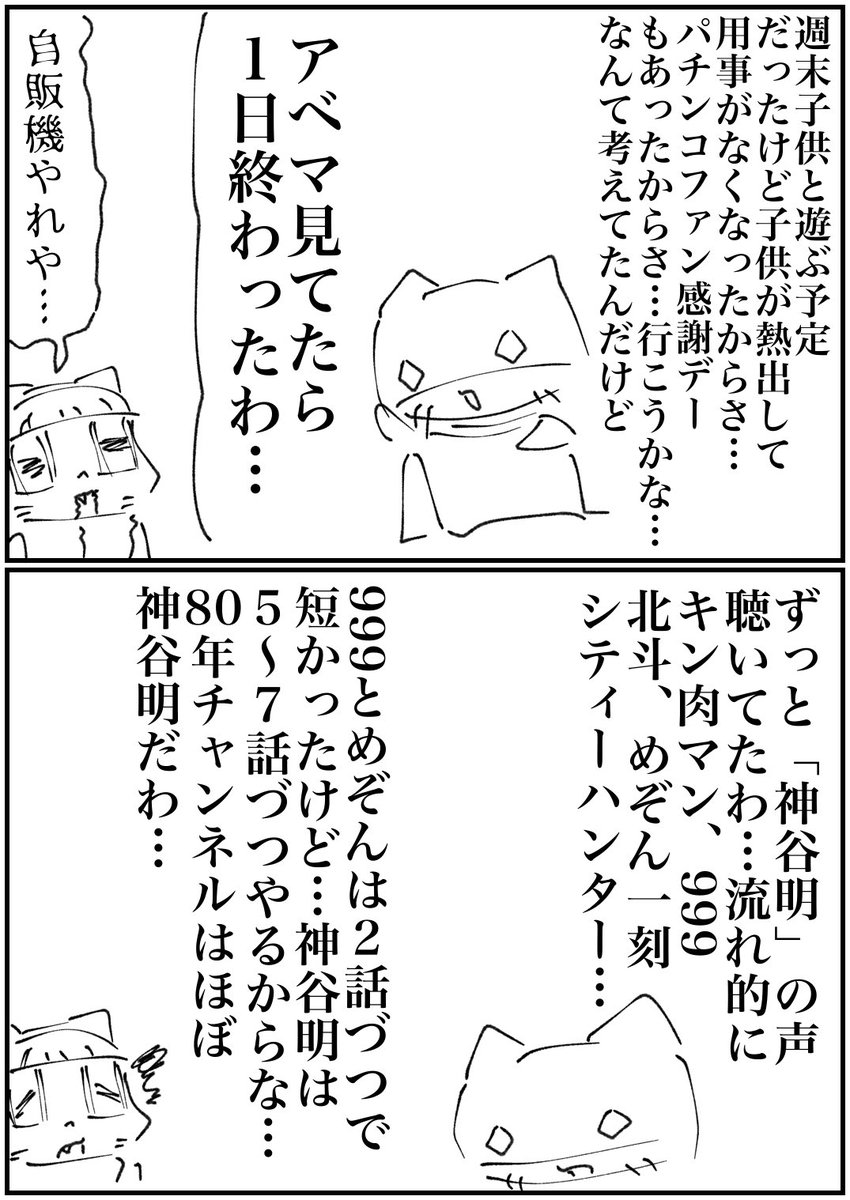 週末子供と遊ぶ予定
だったけど子供が熱出して
用事がなくなったからさ…
パチンコファン感謝デー
もあったからさ…行こうかな…
なんて考えてたんだけど
アベマ見てたら
1日終わったわ…
自販機やれや…
ずっと「神谷明」の声
聴いてたわ…流れ的に
キン肉マン、999
北斗、めぞん一刻
シティーハンター…
999とめぞんは2話づつで
短かったけど…神谷明は
5〜7話づつやるからな…
80年チャンネルはほぼ
神谷明だわ…